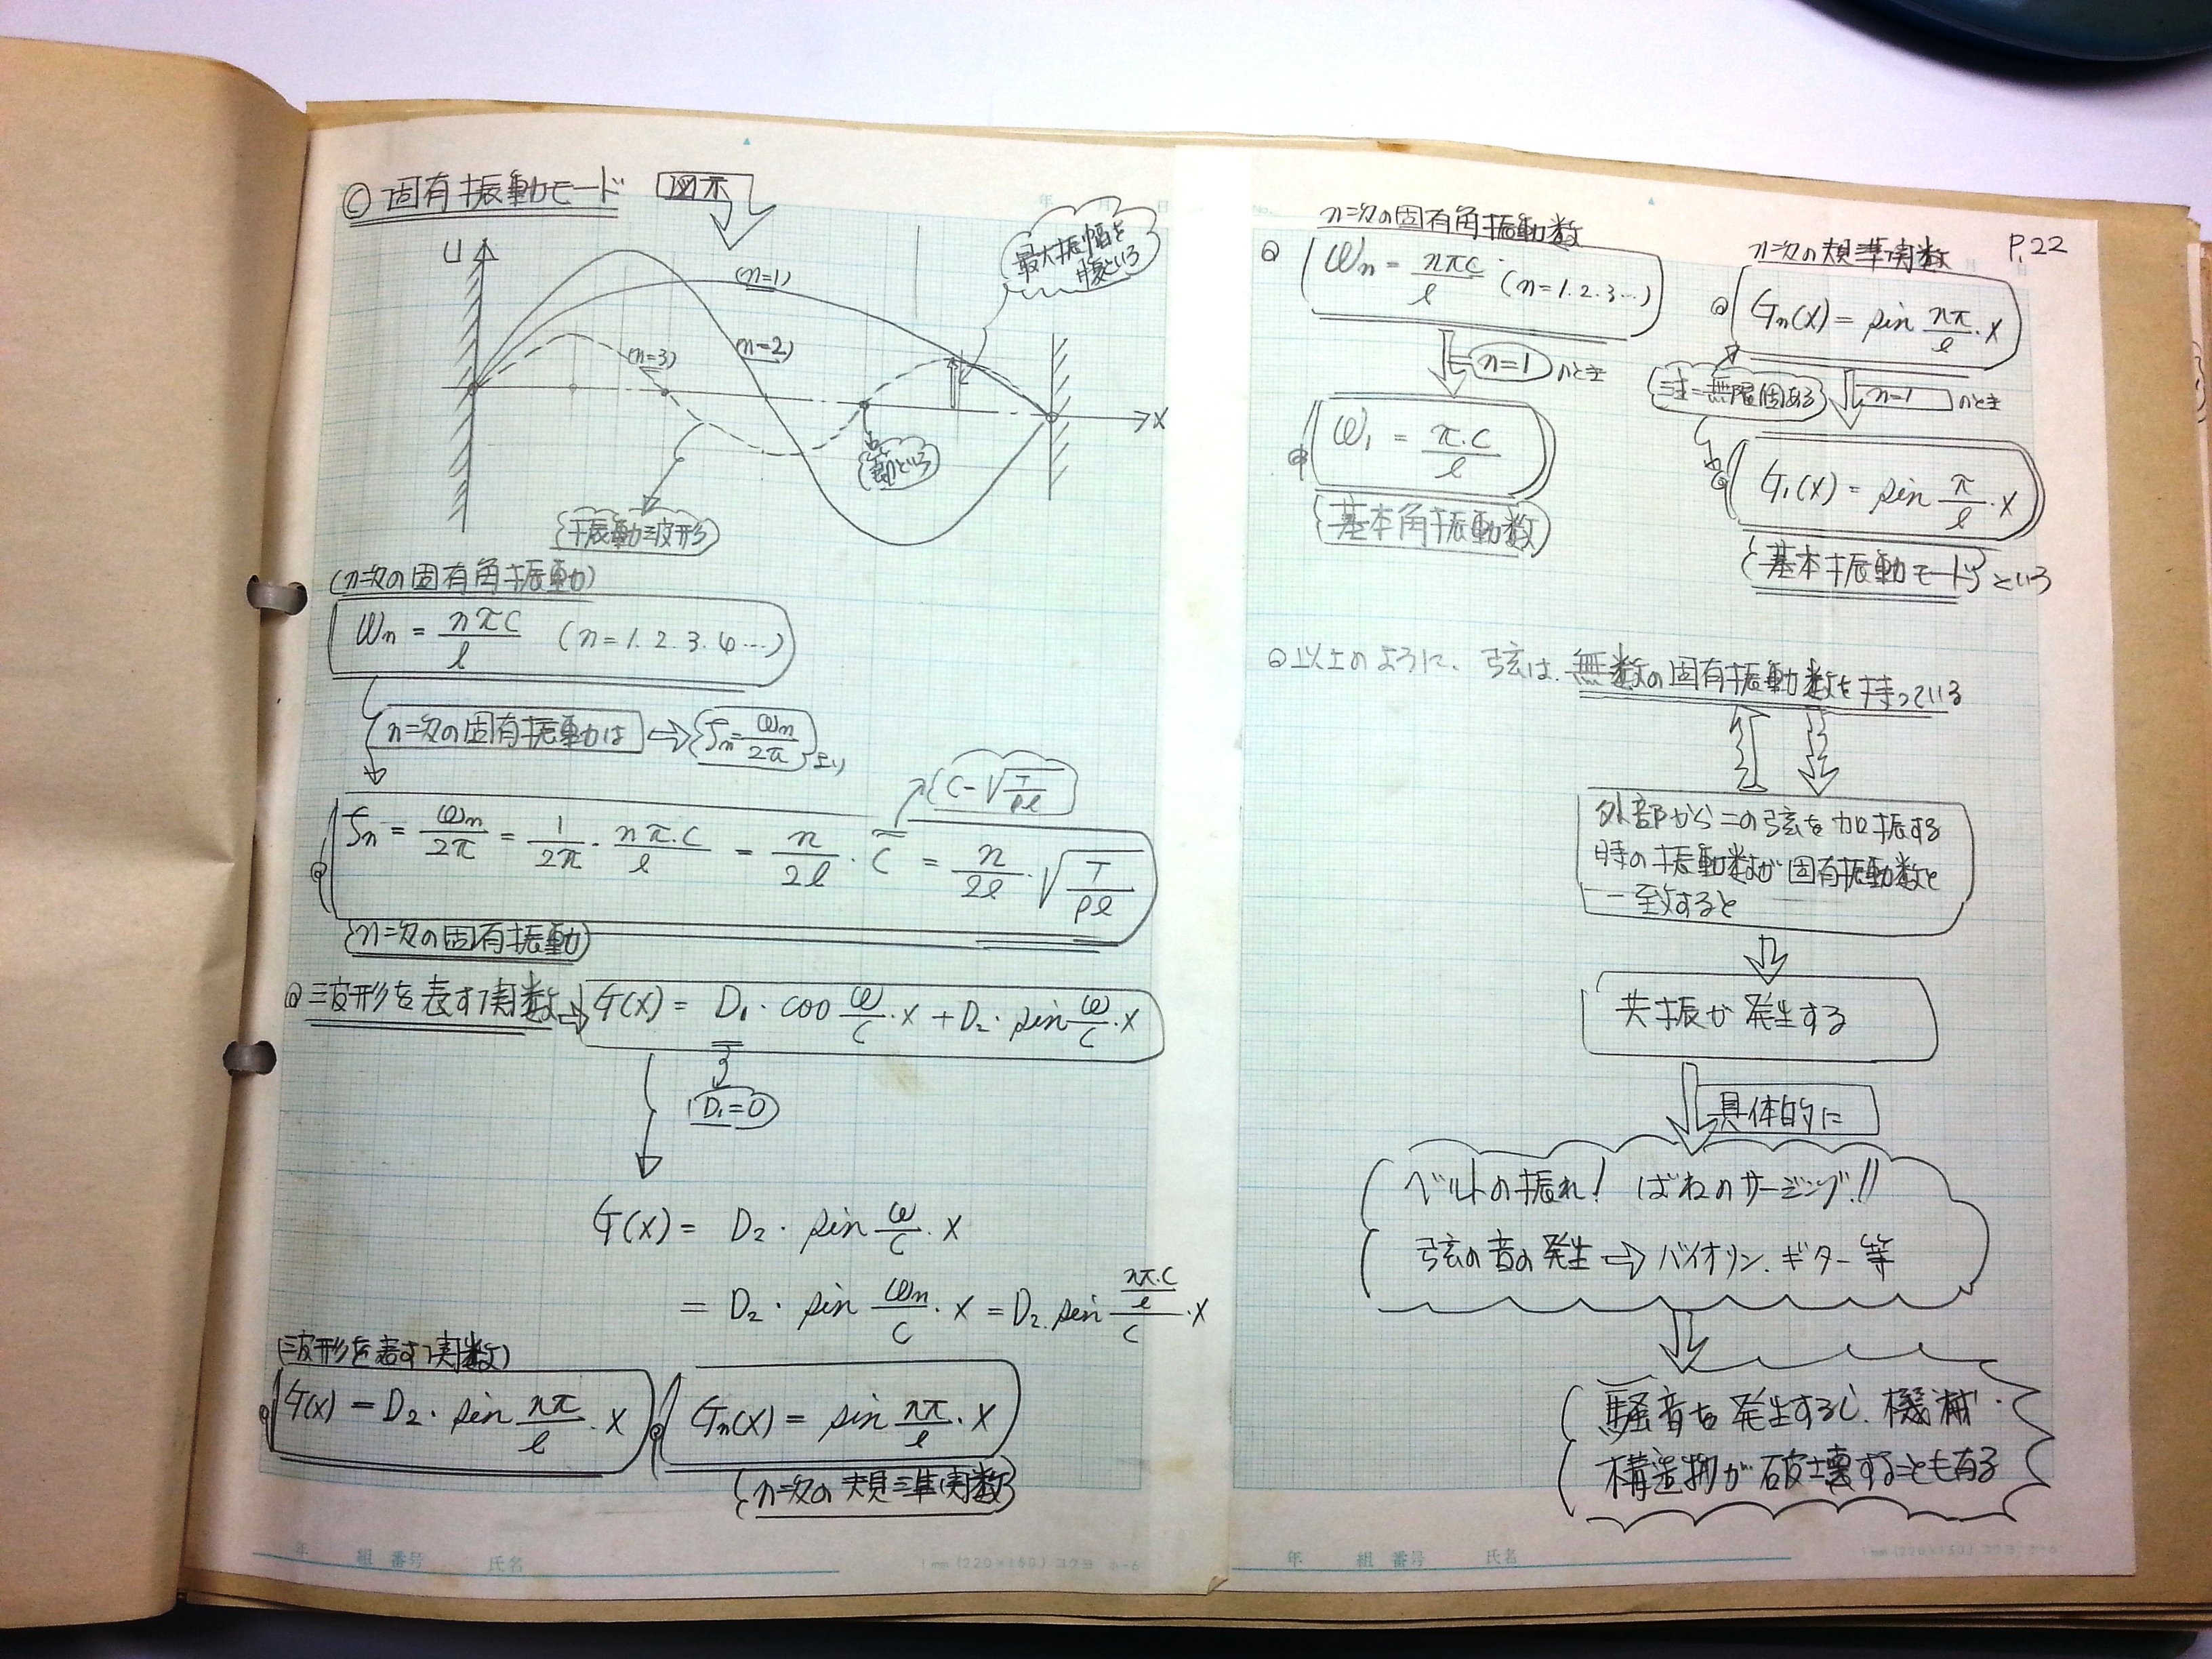 © 固有振動モード 図示
U
(n=1)
最大振幅を
腹という
(n=3)
(n=2)
X
節という
振動波形
(n次の固有角振動)
ωn = nπC/l (n=1.2.3.4…)
n次の固有振動は ⇨ fn=ωn/2π より
C=√T/ρl
fn = ωn/2π = 1/2π・nπ.C/l = n/2l・C = n/2l・√T/ρl
(n次の固有振動)
波形を表す関数 ⇨ G(X) = D1・cos ω/C・X + D2・sin ω/C・X
D1=0
G(X) = D2・sin ω/C・X
= D2・sin ωn/C・X = D2.sin nπ.C/l/C・X
(波形を表す関数)
G(X) = D2・sin nπ/l・X
Gn(X) = sin nπ/l・X
(n次の規準関数)
年 組 番号 氏名
1mm(220×160) コクヨ ホ-6
P.22
n次の固有角振動数
ωn = nπC/l (n=1.2.3…)
n=1 のとき
ω1 = π.C/l
基本角振動数
n次の規準関数
Gn(X) = sin nπ/l・X
注=無限個ある
n=1 のとき
G1(X) = sin π/l・X
基本振動モード という
以上のように、弦は、無数の固有振動数を持っている
外部からこの弦を加振する
時の振動数が固有振動数と
一致すると
共振が発生する
具体的に
ベルトの振れ! ばねのサージング!!
弦の音の発生 ⇨ バイオリン.ギター等
騒音を発生するし、機械・
構造物が破壊することも有る
年 組 番号 氏名